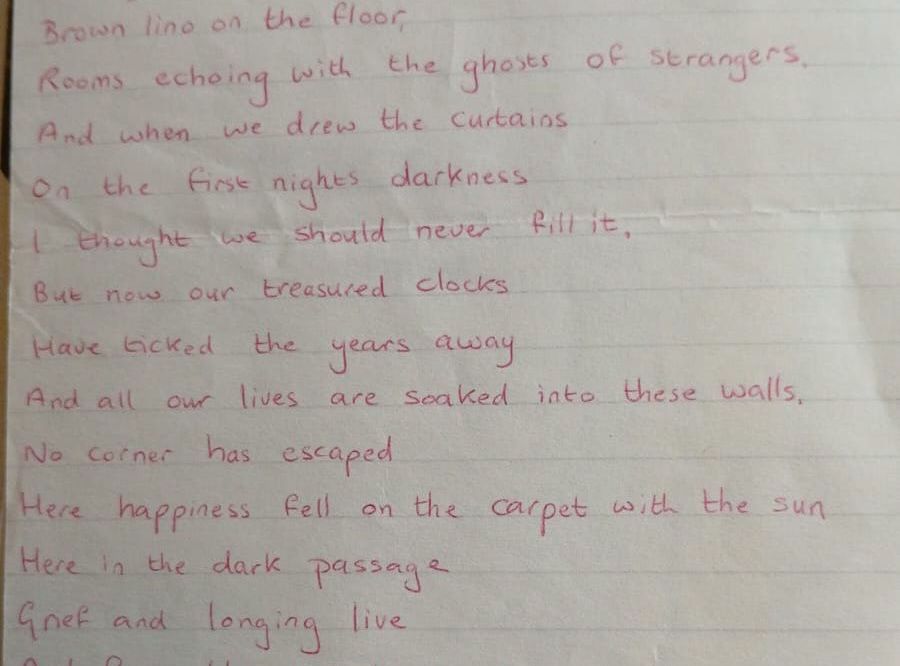 Brown lino on the floor,
Rooms echoing with the ghosts of strangers.
And when we drew the curtains
On the first nights darkness
I thought we should never fill it.
But now our treasured clocks
Have ticked the years away
And all our lives are soaked into these walls.
No corner has escaped
Here happiness fell on the carpet with the sun
Here in the dark passage
Grief and longing live